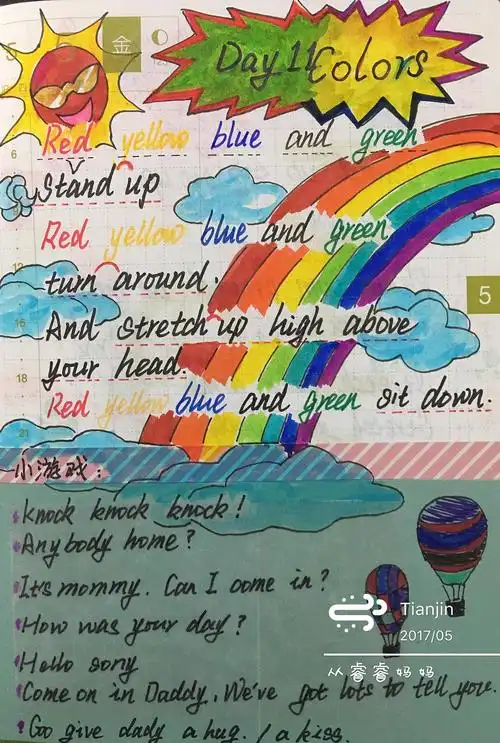 金
Day 11 Colors
Red yellow blue and green
6
Stand up
Red yellow blue and green
12
turn around.
5
And stretch up high above
16
your head.
18
Red yellow blue and green sit down.
21
小游戏:
Knock knock knock!
Anybody home?
It's mommy. Can I come in?
How was your day?
Hello sony
Come on in Daddy. We've got lots to tell you.
Goo give dady a hug. / a kiss.
Tianjin
2017/05
从睿睿妈妈